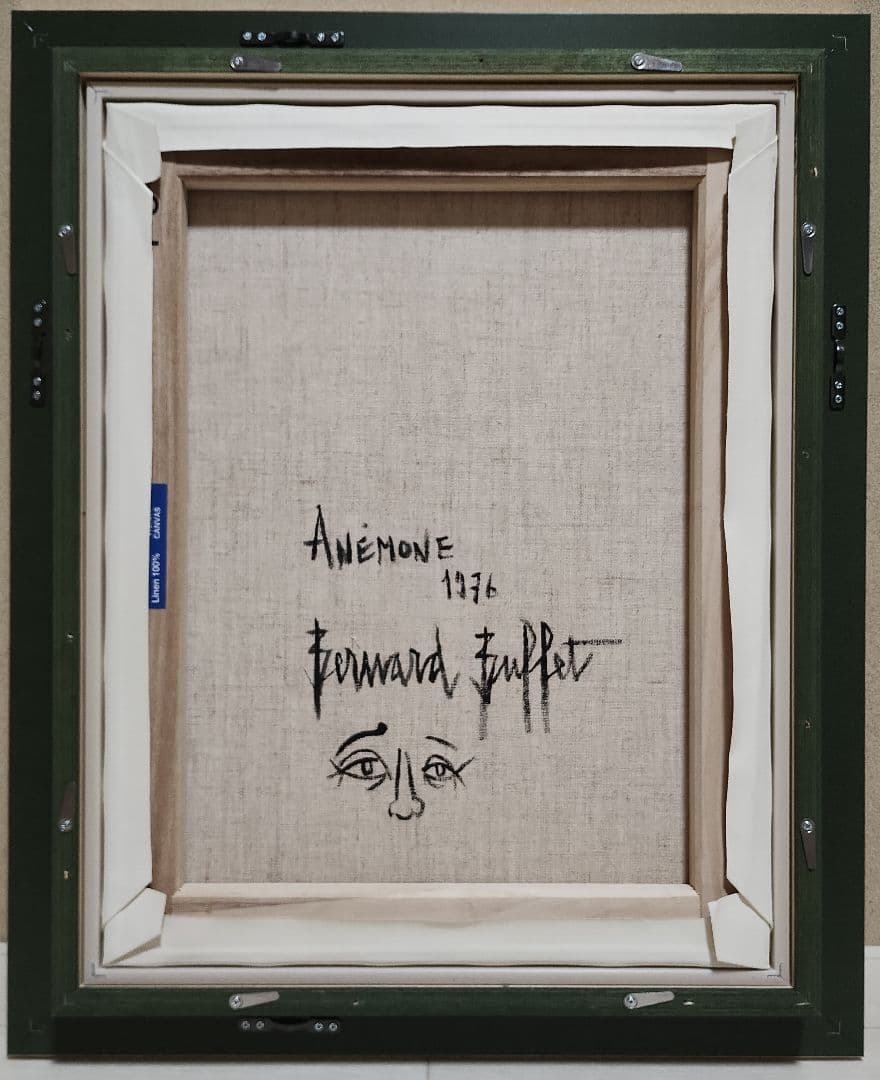 ANÉMONE
1976
Bernard Buffet
Linen 100% CANVAS